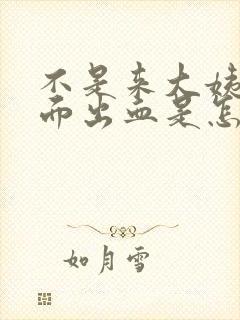 不是来大姨
而出血是怎
如月雪